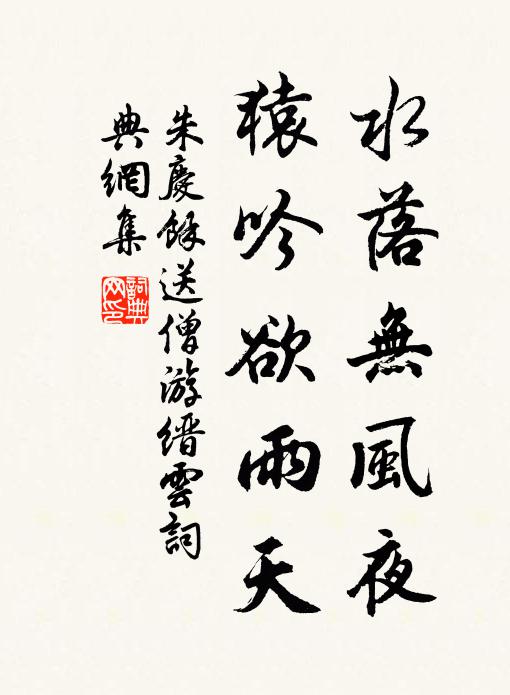 水落無風夜
猿吟欲雨天
朱慶餘送僧游縉雲詞
典網集
詞典
网印